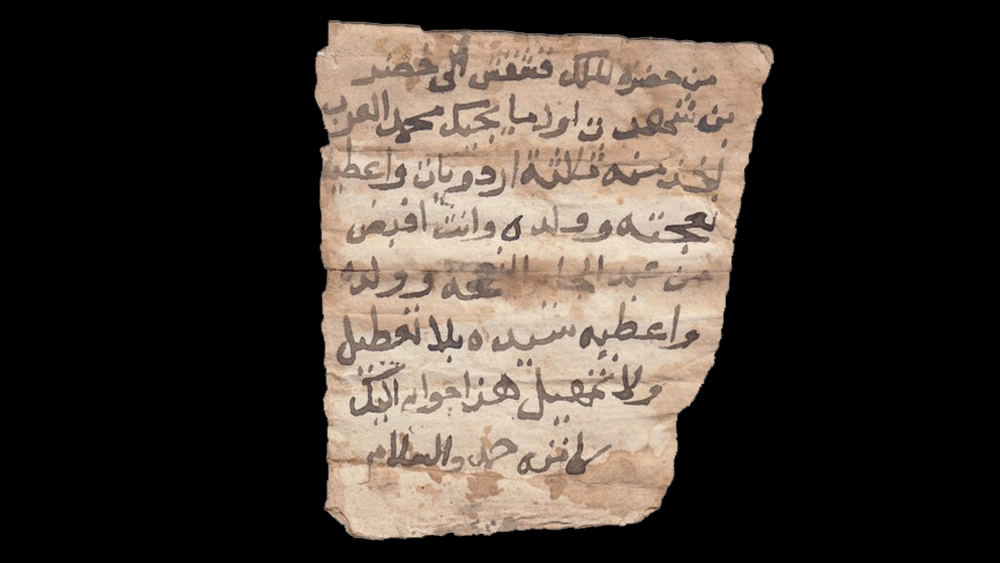 من حضره الملك قشقش الى خضر
بن شهدت اوزما يجيك محمد العرب
اخذ منه ثلاثة اردويات واعطيه
نعجته وولده وانت اقبض
من عبد الجابر النعجه وولده
واعطيه سيده بلا تعطيل
ولا تمهيل هذا جوابي اليك
كاتبه حمد والسلام